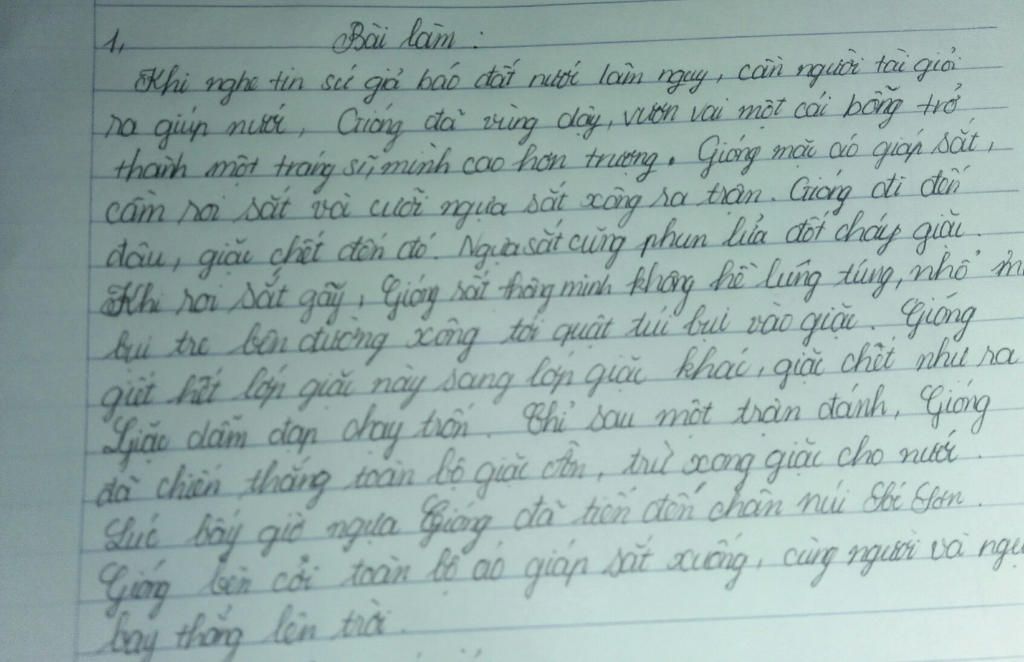 1, Bài làm :
Khi nghe tin sứ giả báo đất nước lâm nguy, cần người tài giỏi
ra giúp nước, Gióng đã vùng dậy, vươn vai một cái bỗng trở
thành một tráng sĩ, mình cao hơn trượng. Gióng mặc áo giáp sắt,
cầm roi sắt và cưỡi ngựa sắt xông ra trận. Gióng đi đến
đâu, giặc chết đến đó. Ngựa sắt cũng phun lửa đốt cháy giặc.
Khi roi sắt gãy, Gióng rất thông minh không hề lúng túng, nhổ
bụi tre bên đường xông tới quật túi bụi vào giặc. Gióng
giết hết lớp giặc này sang lớp giặc khác, giặc chết như ra
Giặc dẫm đạp chạy trốn. Chỉ sau một trận đánh, Gióng
đã chiến thắng toàn bộ giặc Ân, trừ xong giặc cho nước.
Lúc bấy giờ ngựa Gióng đã tiến đến chân núi Sóc Sơn.
Gióng bèn cởi toàn bộ áo giáp sắt xuống, cùng người và
bay thẳng lên trời.